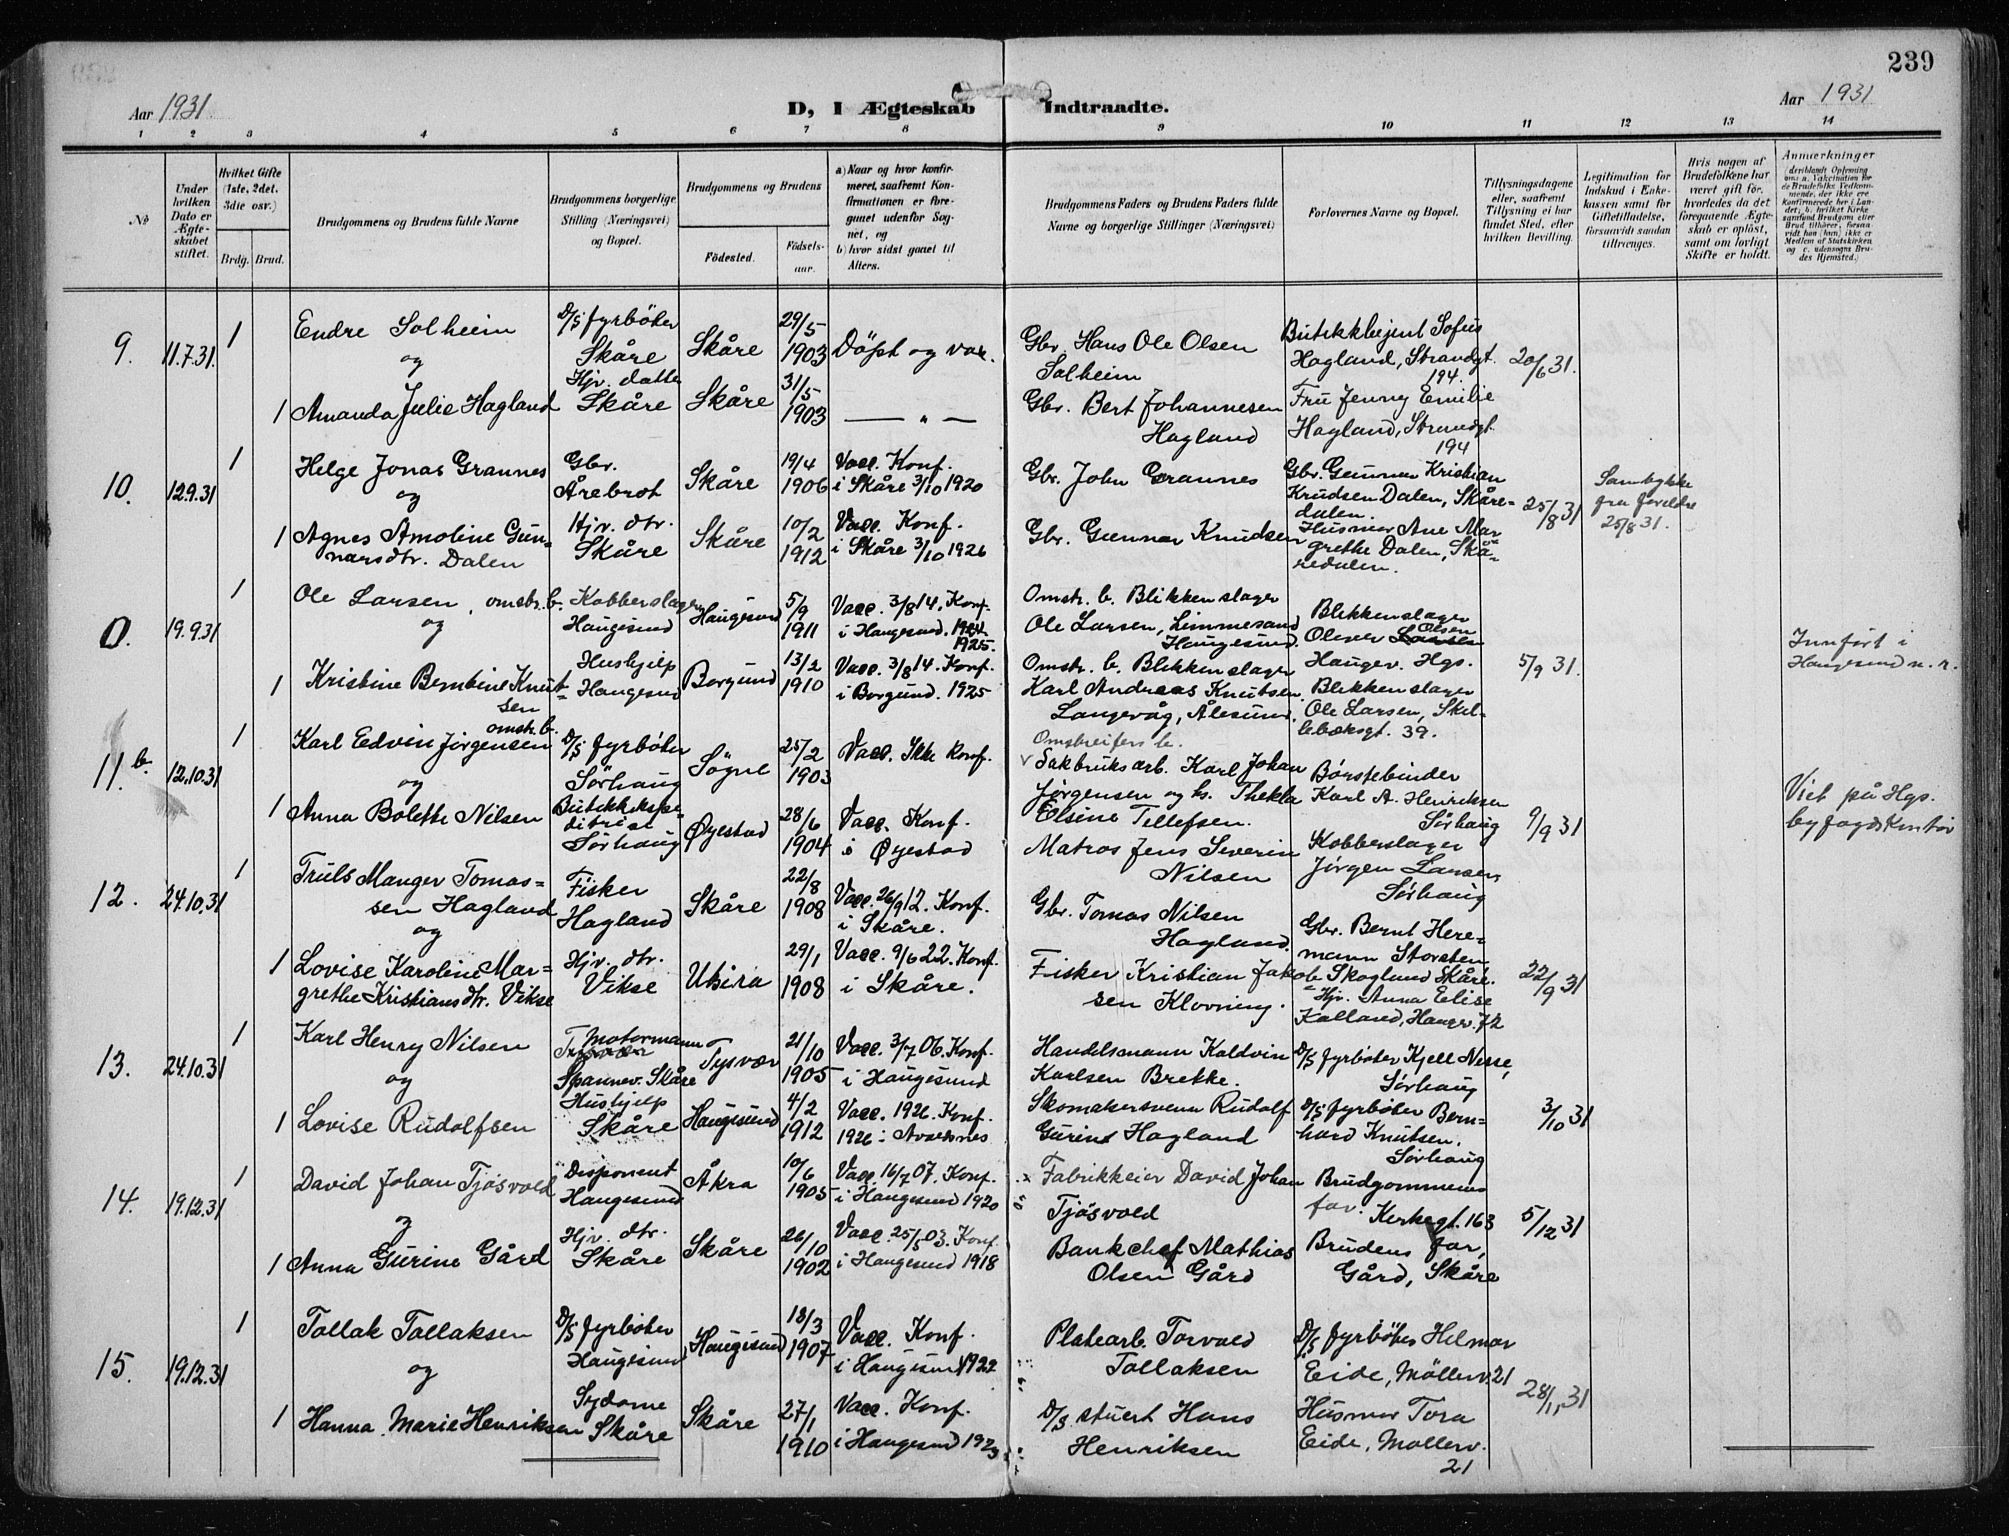 239
Aar 1931
D, I Ægteskab Indtraadte.
Aar 1931
1 2 3 4 5 6 7 8 9 10 11 12 13 14
No
Under hvilken Dato er Ægteskabet stiftet.
Hvilket Gifte (1ste, 2det, 3die osv.)
Brdg. Brud.
Brudgommens og Brudens fulde Navne
Brudgommens borgerlige Stilling (Næringsvei) og Bopæl.
Brudgommens og Brudens
Fødested. Fødselsaar.
a) Naar og hvor konfirmeret, saafremt Konfirmationen er foregaaet udenfor Sognet, og
b) hvor sidst gaaet til Alters.
Brudgommens Faders og Brudens Faders fulde Navne og borgerlige Stillinger (Næringsvei)
Forlovernes Navne og Bopæl.
Tillysningsdagene eller, saafremt Tillysning ei har fundet Sted, efter hvilken Bevilling.
Legitimation for Indskud i Enkekassen samt for Giftetilladelse, forsaavidt saadan tiltrænges.
Hvis nogen af Brudefolkene har været gift før, hvorledes da det foregaaende Ægteskab er opløst, samt om lovligt Skifte er holdt.
Anmerkninger
9. 11.7.31. 1
Endre Solheim
og
D/S fyrbøter
Skåre
Skåre
29/5
1903
Döpt og vac.
Gbr. Hans Ole Olsen
Solheim
Butikkbejent Sofus
Hagland, Strandgt.
194.
20/6 31.
1 Amanda Julie Hagland
Hjv. datter
Skåre
Skåre
31/5
1903
— " —
Gbr. Bert Johannesen
Hagland
Fru Jenny Emilie
Hagland, Strandgt
194
10. 12.9.31 1
Helge Jonas Grannes
og
Gbr.
Årebrot
Skåre
19/4
1906
Vacc. Konf.
i Skåre 3/10 1920
Gbr. John Grannes
Gbr. Gunnar Kristian
Knudsen Dalen, Skåre=
dalen.
25/8 31
Samtykke
fra foreldre
25/8 31.
1 Agnes Amoline Gun-
narsdtr. Dalen
Hjv. dtr.
Skåre
Skåre
10/2
1912
Vacc. Konf.
i Skåre 3/10 1926
Gbr. Gunnar Knudsen
Husmor Ane Mar
grethe Dalen, Skå=
redalen.
0. 19.9.31 1
Ole Larsen, omstr. b.
og
Kobberslager
Haugesund
Haugesund
5/9
1911
Vacc. 3/8 14. Konf.
i Haugesund. 1924.
1925.
Omstr. b. Blikkenslager
Ole Larsen, Limmesand
Haugesund.
Blikkenslager
Oliver Larsen Olsen
Haugev. Hgs.
5/9 31.
Innført i
Haugesund m. r.
1 Kristine Bembine Knut-
sen
omstr. b.
Hushjelp
Haugesund
Borgund
13/2
1910
Vacc. 3/8 14. Konf.
i Borgund. 1925
Omstr. b. Blikkenslager
Karl Andreas Knutsen
Langevåg, Ålesund.
Blikkenslager
Ole Larsen, Skil-
lebæksgt. 39.
11.b. 12.10.31 1
Karl Edvin Jørgensen
og
D/S fyrbøter
Sørhaug
Søgne
25/2
1903
Vacc. Ikke konf.
Omstreifers b.
Sakbruksarb. Karl Johan
Jørgensen og h. Thekla
Elsine Tellefsen.
Børstebinder
Karl A. Henriksen
Sørhaug
9/9 31
Viet på Hgs.
byfogdskontor
1 Anna Bolette Nilsen
Butikkekspe-
ditrise
Sørhaug
Øyestad
28/6
1904
Vacc. Konf.
i Øyestad
Matros Jens Severin
Nilsen
Kobberslager
Jørgen Larsen,
Sørhaug
12. 24.10.31 1
Truls Manger Tomas=
sen Hagland
og
Fisker
Hagland
Skåre
22/8
1908
Vacc. 26/9 12. Konf.
i Skåre.
Gbr. Tomas Nilsen
Hagland.
Gbr. Bernt Here=
mann Storsten
Skogland Skåre.
22/9 31
1 Lovise Karoline Mar=
grethe Kristiansdtr. Vikse
Hjv. dtr.
Vikse
Utsira
29/1
1908
Vacc. 9/6 22. Konf.
i Skåre.
Fisker Kristian Jakob=
sen Klovning.
Hjv. Anna Elise
Kalland, Haugv. 72
13. 24.10.31 1
Karl Henry Nilsen
og
Motormann
Spannev. Skåre
Tysvær
21/10
1905
Vacc. 3/7 06. Konf.
i Haugesund
Handelsmann Kaldvin
Karlsen Brekke.
D/S fyrbøter Kjell Nesse,
Sørhaug
3/10 31
1 Lovise Rudolfsen
Hushjelp
Skåre
Haugesund
4/2
1912
Vacc. 1926. Konf.
1926 i Avaldsnes
Skomakersvenn Rudolf
Gurins Hagland
D/S fyrbøter Bern-
hard Knutsen.
Sørhaug
14. 19.12.31 1
David Johan Tjösvold
og
Disponent
Haugesund
Åkra
10/6
1905
Vacc. 16/7 07. Konf.
i Haugesund 1920
Fabrikkeier David Johan
Tjösvold
Brudgommens
far. Kirkegt. 163
5/12 31
1 Anna Gurine Gård
Hjv. dtr.
Skåre
Skåre
26/10
1902
Vacc. 25/5 03. Konf.
i Haugesund 1918
Bankchef Mathias
Olsen Gård
Brudens far,
Gård, Skåre
15. 19.12.31 1
Tollak Tollaksen
og
D/S fyrbøter
Haugesund
Haugesund
13/3
1907
Vacc. Konf.
i Haugesund 1922
Platearb. Torvald
Tollaksen
D/S fyrbøter Helmar
Eide, Møllerv. 21
28/11 31
1 Hanna Marie Henriksen
Sydame
Skåre
Skåre
27/1
1910
Vacc. Konf.
i Haugesund 1923
D/S stuert Hans
Henriksen
Husmor Tora
Eide, Møllerv.
21